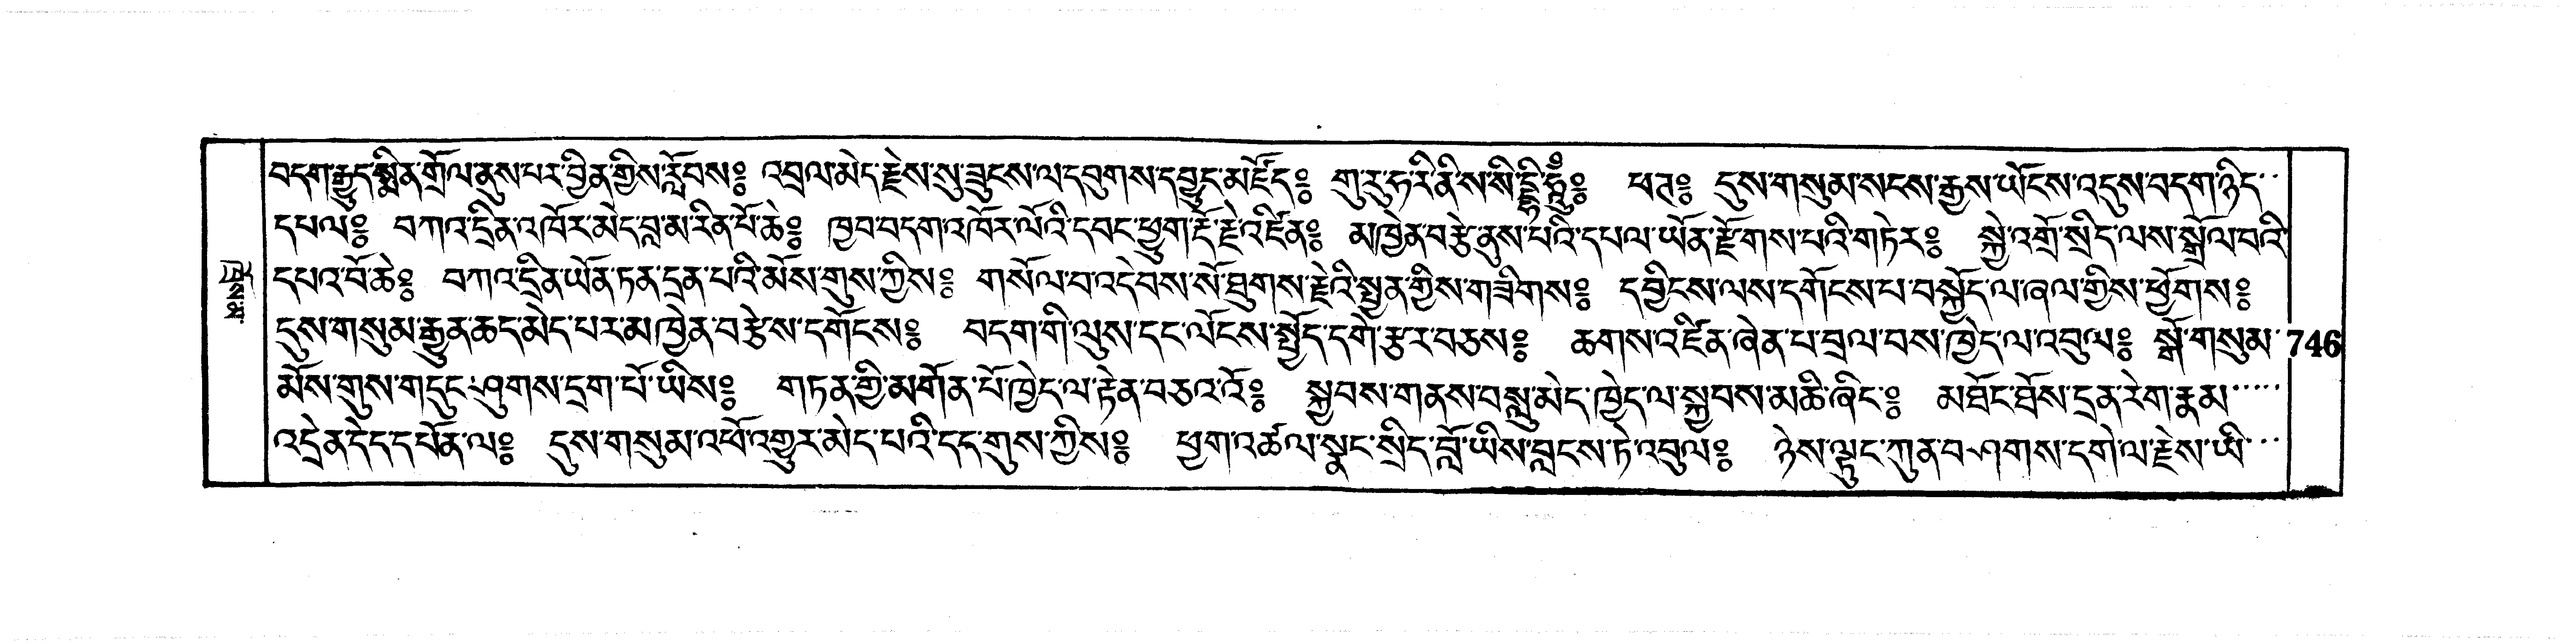 བདག་རྒྱུད་སྨིན་གྲོལ་ནུས་པར་བྱིན་གྱིས་རློབས༔ འབྲལ་མེད་རྗེས་སུ་ཟུངས་ལ་དབུགས་དབྱུང་མཛོད༔ གུ་རུ་ཧ་རི་ནི་ས་སིདྡྷི་ཧཱུྃ༔ ཕཊ༔ དུས་གསུམ་སངས་རྒྱས་ཡོངས་འདུས་བདག་ཉིད་
དཔལ༔ བཀའ་དྲིན་འཁོར་མེད་བླ་མ་རིན་པོ་ཆེ༔ ཁྱབ་བདག་འཁོར་ལོའི་དབང་ཕྱུག་རྡོ་རྗེ་འཛིན༔ མཁྱེན་བརྩེ་ནུས་པའི་དཔལ་ཡོན་རྫོགས་པའི་གཏེར༔ སྐྱེ་འགྲོ་སྲིད་ལས་སྒྲོལ་བའི་
དཔའ་བོ་ཆེ༔ བཀའ་དྲིན་ཡོན་ཏན་དྲན་པའི་མོས་གུས་ཀྱིས༔ གསོལ་བ་འདེབས་སོ་ཐུགས་རྗེའི་སྤྱན་གྱིས་གཟིགས༔ དབྱིངས་ལས་དགོངས་པ་བསྐྱོད་ལ་ཞལ་གྱིས་ཕྱོགས༔
དུས་གསུམ་རྒྱུན་ཆད་མེད་པར་མཁྱེན་བརྩེས་དགོངས༔ བདག་གི་ལུས་དང་ལོངས་སྤྱོད་དགེ་རྩར་བཅས༔ ཆགས་འཛིན་ཞེན་པ་བྲལ་བས་ཁྱེད་ལ་འབུལ༔ སྒོ་གསུམ་ 746
མོས་གུས་གདུང་ཤུགས་དྲག་པོ་ཡིས༔ གཏན་གྱི་མགོན་པོ་ཁྱེད་ལ་རྟེན་བཅའ་འོ༔ སྐྱབས་གནས་བསླུ་མེད་ཁྱེད་ལ་སྐྱབས་མཆི་ཞིང་༔ མཐོང་ཐོས་དྲན་རེག་རྣམ་
འདྲེན་དེད་དཔོན་ལ༔ དུས་གསུམ་འཕོ་འགྱུར་མེད་པའི་དད་གུས་ཀྱིས༔ ཕྱག་འཚལ་སྣང་སྲིད་བློ་ཡིས་བླངས་ཏེ་འབུལ༔ ཉེས་ལྟུང་ཀུན་བཤགས་དགེ་ལ་རྗེས་ཡི་